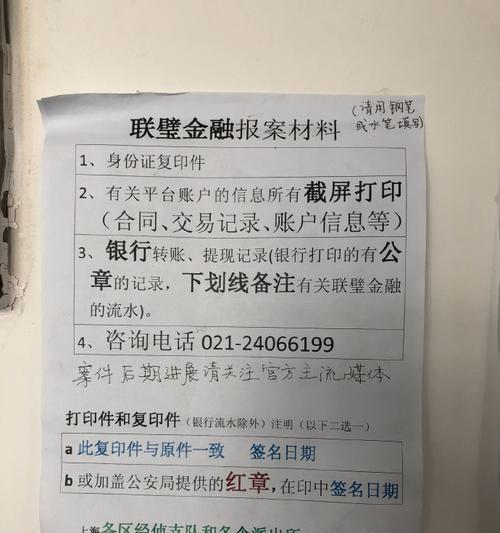 (请用钢笔
或水笔填写)
联璧金融报案材料
1、身份证复印件
2、有关平台账户的信息所有截屏打印
(合同、交易记录、账户信息等)
3、银行转账、提现记录(银行打印的有公
章的记录，下划线备注有关联璧金融
的流水)。
4、咨询电话 021-24066199
案件后期进展请关注官方主流媒体
打印件和复印件（银行流水除外）注明（以下二选一）
a 此复印件与原件一致 签名日期
b 或加盖公安局提供的红章,在印中签名日期
上海各区经侦支队和各个派出所